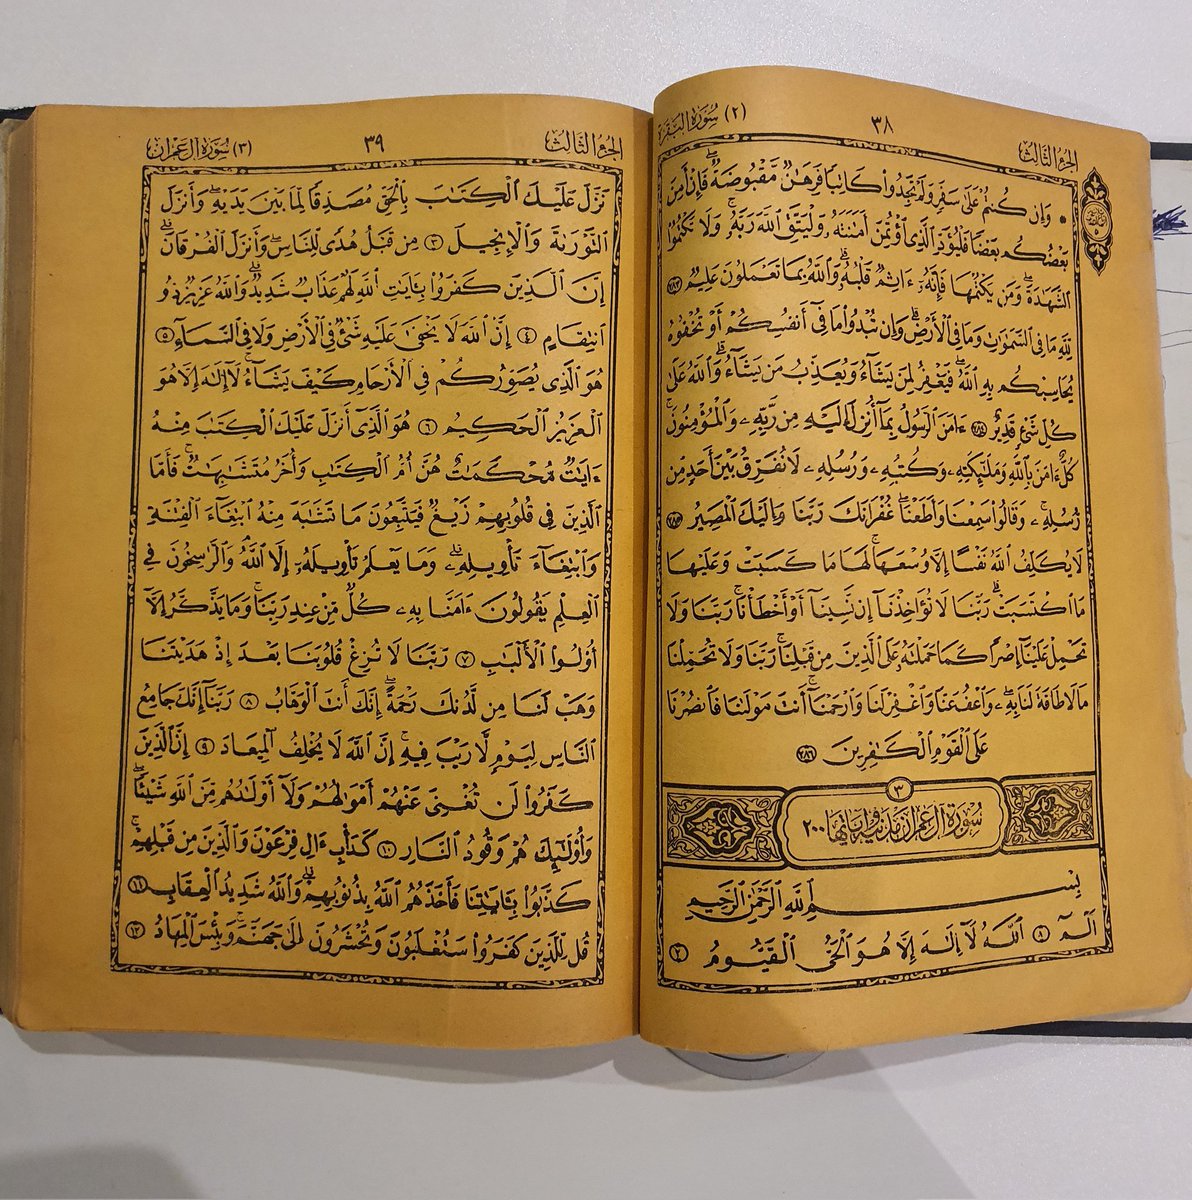 الجزء الثالث
٣٨
(٢) سورة البقرة
۞ وَإِن كُنتُمْ عَلَىٰ سَفَرٍ وَلَمْ تَجِدُوا۟ كَاتِبًا فَرِهَٰنٌ مَّقْبُوضَةٌ ۖ فَإِنْ أَمِنَ
بَعْضُكُم بَعْضًا فَلْيُؤَدِّ ٱلَّذِى ٱؤْتُمِنَ أَمَٰنَتَهُۥ وَلْيَتَّقِ ٱللَّهَ رَبَّهُۥ ۗ وَلَا تَكْتُمُوا۟
ٱلشَّهَٰدَةَ ۚ وَمَن يَكْتُمْهَا فَإِنَّهُۥٓ ءَاثِمٌ قَلْبُهُۥ ۗ وَٱللَّهُ بِمَا تَعْمَلُونَ عَلِيمٌ ٢٨٣
لِّلَّهِ مَا فِى ٱلسَّمَٰوَٰتِ وَمَا فِى ٱلْأَرْضِ ۗ وَإِن تُبْدُوا۟ مَا فِىٓ أَنفُسِكُمْ أَوْ تُخْفُوهُ
يُحَاسِبْكُم بِهِ ٱللَّهُ ۖ فَيَغْفِرُ لِمَن يَشَآءُ وَيُعَذِّبُ مَن يَشَآءُ ۗ وَٱللَّهُ عَلَىٰ
كُلِّ شَىْءٍ قَدِيرٌ ٢٨٤ ءَامَنَ ٱلرَّسُولُ بِمَآ أُنزِلَ إِلَيْهِ مِن رَّبِّهِۦ وَٱلْمُؤْمِنُونَ ۚ
كُلٌّ ءَامَنَ بِٱللَّهِ وَمَلَٰٓئِكَتِهِۦ وَكُتُبِهِۦ وَرُسُلِهِۦ لَا نُفَرِّقُ بَيْنَ أَحَدٍ مِّن
رُّسُلِهِۦ ۚ وَقَالُوا۟ سَمِعْنَا وَأَطَعْنَا ۖ غُفْرَانَكَ رَبَّنَا وَإِلَيْكَ ٱلْمَصِيرُ ٢٨٥
لَا يُكَلِّفُ ٱللَّهُ نَفْسًا إِلَّا وُسْعَهَا ۚ لَهَا مَا كَسَبَتْ وَعَلَيْهَا
مَا ٱكْتَسَبَتْ ۗ رَبَّنَا لَا تُؤَاخِذْنَآ إِن نَّسِينَآ أَوْ أَخْطَأْنَا ۚ رَبَّنَا وَلَا
تَحْمِلْ عَلَيْنَآ إِصْرًا كَمَا حَمَلْتَهُۥ عَلَى ٱلَّذِينَ مِن قَبْلِنَا ۚ رَبَّنَا وَلَا تُحَمِّلْنَا
مَا لَا طَاقَةَ لَنَا بِهِۦ ۖ وَٱعْفُ عَنَّا وَٱغْفِرْ لَنَا وَٱرْحَمْنَآ ۚ أَنتَ مَوْلَىٰنَا فَٱنصُرْنَا
عَلَى ٱلْقَوْمِ ٱلْكَٰفِرِينَ ٢٨٦
٣
سُورَةُ آلِ عِمْرَانَ مَدَنِيَّةٌ وَآيَاتُهَا ٢٠٠
بِسْمِ ٱللَّهِ ٱلرَّحْمَٰنِ ٱلرَّحِيمِ
الٓمٓ ١ ٱللَّهُ لَآ إِلَٰهَ إِلَّا هُوَ ٱلْحَىُّ ٱلْقَيُّومُ ٢
الجزء الثالث
٣٩
(٣) سورة آل عمران
نَزَّلَ عَلَيْكَ ٱلْكِتَٰبَ بِٱلْحَقِّ مُصَدِّقًا لِّمَا بَيْنَ يَدَيْهِ وَأَنزَلَ
ٱلتَّوْرَىٰةَ وَٱلْإِنجِيلَ ٣ مِن قَبْلُ هُدًى لِّلنَّاسِ وَأَنزَلَ ٱلْفُرْقَانَ ۗ
إِنَّ ٱلَّذِينَ كَفَرُوا۟ بِـَٔايَٰتِ ٱللَّهِ لَهُمْ عَذَابٌ شَدِيدٌ ۗ وَٱللَّهُ عَزِيزٌ ذُو
ٱنتِقَامٍ ٤ إِنَّ ٱللَّهَ لَا يَخْفَىٰ عَلَيْهِ شَىْءٌ فِى ٱلْأَرْضِ وَلَا فِى ٱلسَّمَآءِ ٥
هُوَ ٱلَّذِى يُصَوِّرُكُمْ فِى ٱلْأَرْحَامِ كَيْفَ يَشَآءُ ۚ لَآ إِلَٰهَ إِلَّا هُوَ
ٱلْعَزِيزُ ٱلْحَكِيمُ ٦ هُوَ ٱلَّذِىٓ أَنزَلَ عَلَيْكَ ٱلْكِتَٰبَ مِنْهُ
ءَايَٰتٌ مُّحْكَمَٰتٌ هُنَّ أُمُّ ٱلْكِتَٰبِ وَأُخَرُ مُتَشَٰبِهَٰتٌ ۖ فَأَمَّا
ٱلَّذِينَ فِى قُلُوبِهِمْ زَيْغٌ فَيَتَّبِعُونَ مَا تَشَٰبَهَ مِنْهُ ٱبْتِغَآءَ ٱلْفِتْنَةِ
وَٱبْتِغَآءَ تَأْوِيلِهِۦ ۗ وَمَا يَعْلَمُ تَأْوِيلَهُۥٓ إِلَّا ٱللَّهُ ۗ وَٱلرَّٰسِخُونَ فِى
ٱلْعِلْمِ يَقُولُونَ ءَامَنَّا بِهِۦ كُلٌّ مِّنْ عِندِ رَبِّنَا ۗ وَمَا يَذَّكَّرُ إِلَّآ
أُو۟لُوا۟ ٱلْأَلْبَٰبِ ٧ رَبَّنَا لَا تُزِغْ قُلُوبَنَا بَعْدَ إِذْ هَدَيْتَنَا
وَهَبْ لَنَا مِن لَّدُنكَ رَحْمَةً ۚ إِنَّكَ أَنتَ ٱلْوَهَّابُ ٨ رَبَّنَآ إِنَّكَ جَامِعُ
ٱلنَّاسِ لِيَوْمٍ لَّا رَيْبَ فِيهِ ۚ إِنَّ ٱللَّهَ لَا يُخْلِفُ ٱلْمِيعَادَ ٩ إِنَّ ٱلَّذِينَ
كَفَرُوا۟ لَن تُغْنِىَ عَنْهُمْ أَمْوَٰلُهُمْ وَلَآ أَوْلَٰدُهُم مِّنَ ٱللَّهِ شَيْـًٔا ۖ
وَأُو۟لَٰٓئِكَ هُمْ وَقُودُ ٱلنَّارِ ١٠ كَدَأْبِ ءَالِ فِرْعَوْنَ وَٱلَّذِينَ مِن قَبْلِهِمْ ۚ
كَذَّبُوا۟ بِـَٔايَٰتِنَا فَأَخَذَهُمُ ٱللَّهُ بِذُنُوبِهِمْ ۗ وَٱللَّهُ شَدِيدُ ٱلْعِقَابِ ١١
قُل لِّلَّذِينَ كَفَرُوا۟ سَتُغْلَبُونَ وَتُحْشَرُونَ إِلَىٰ جَهَنَّمَ ۚ وَبِئْسَ ٱلْمِهَادُ ١٢